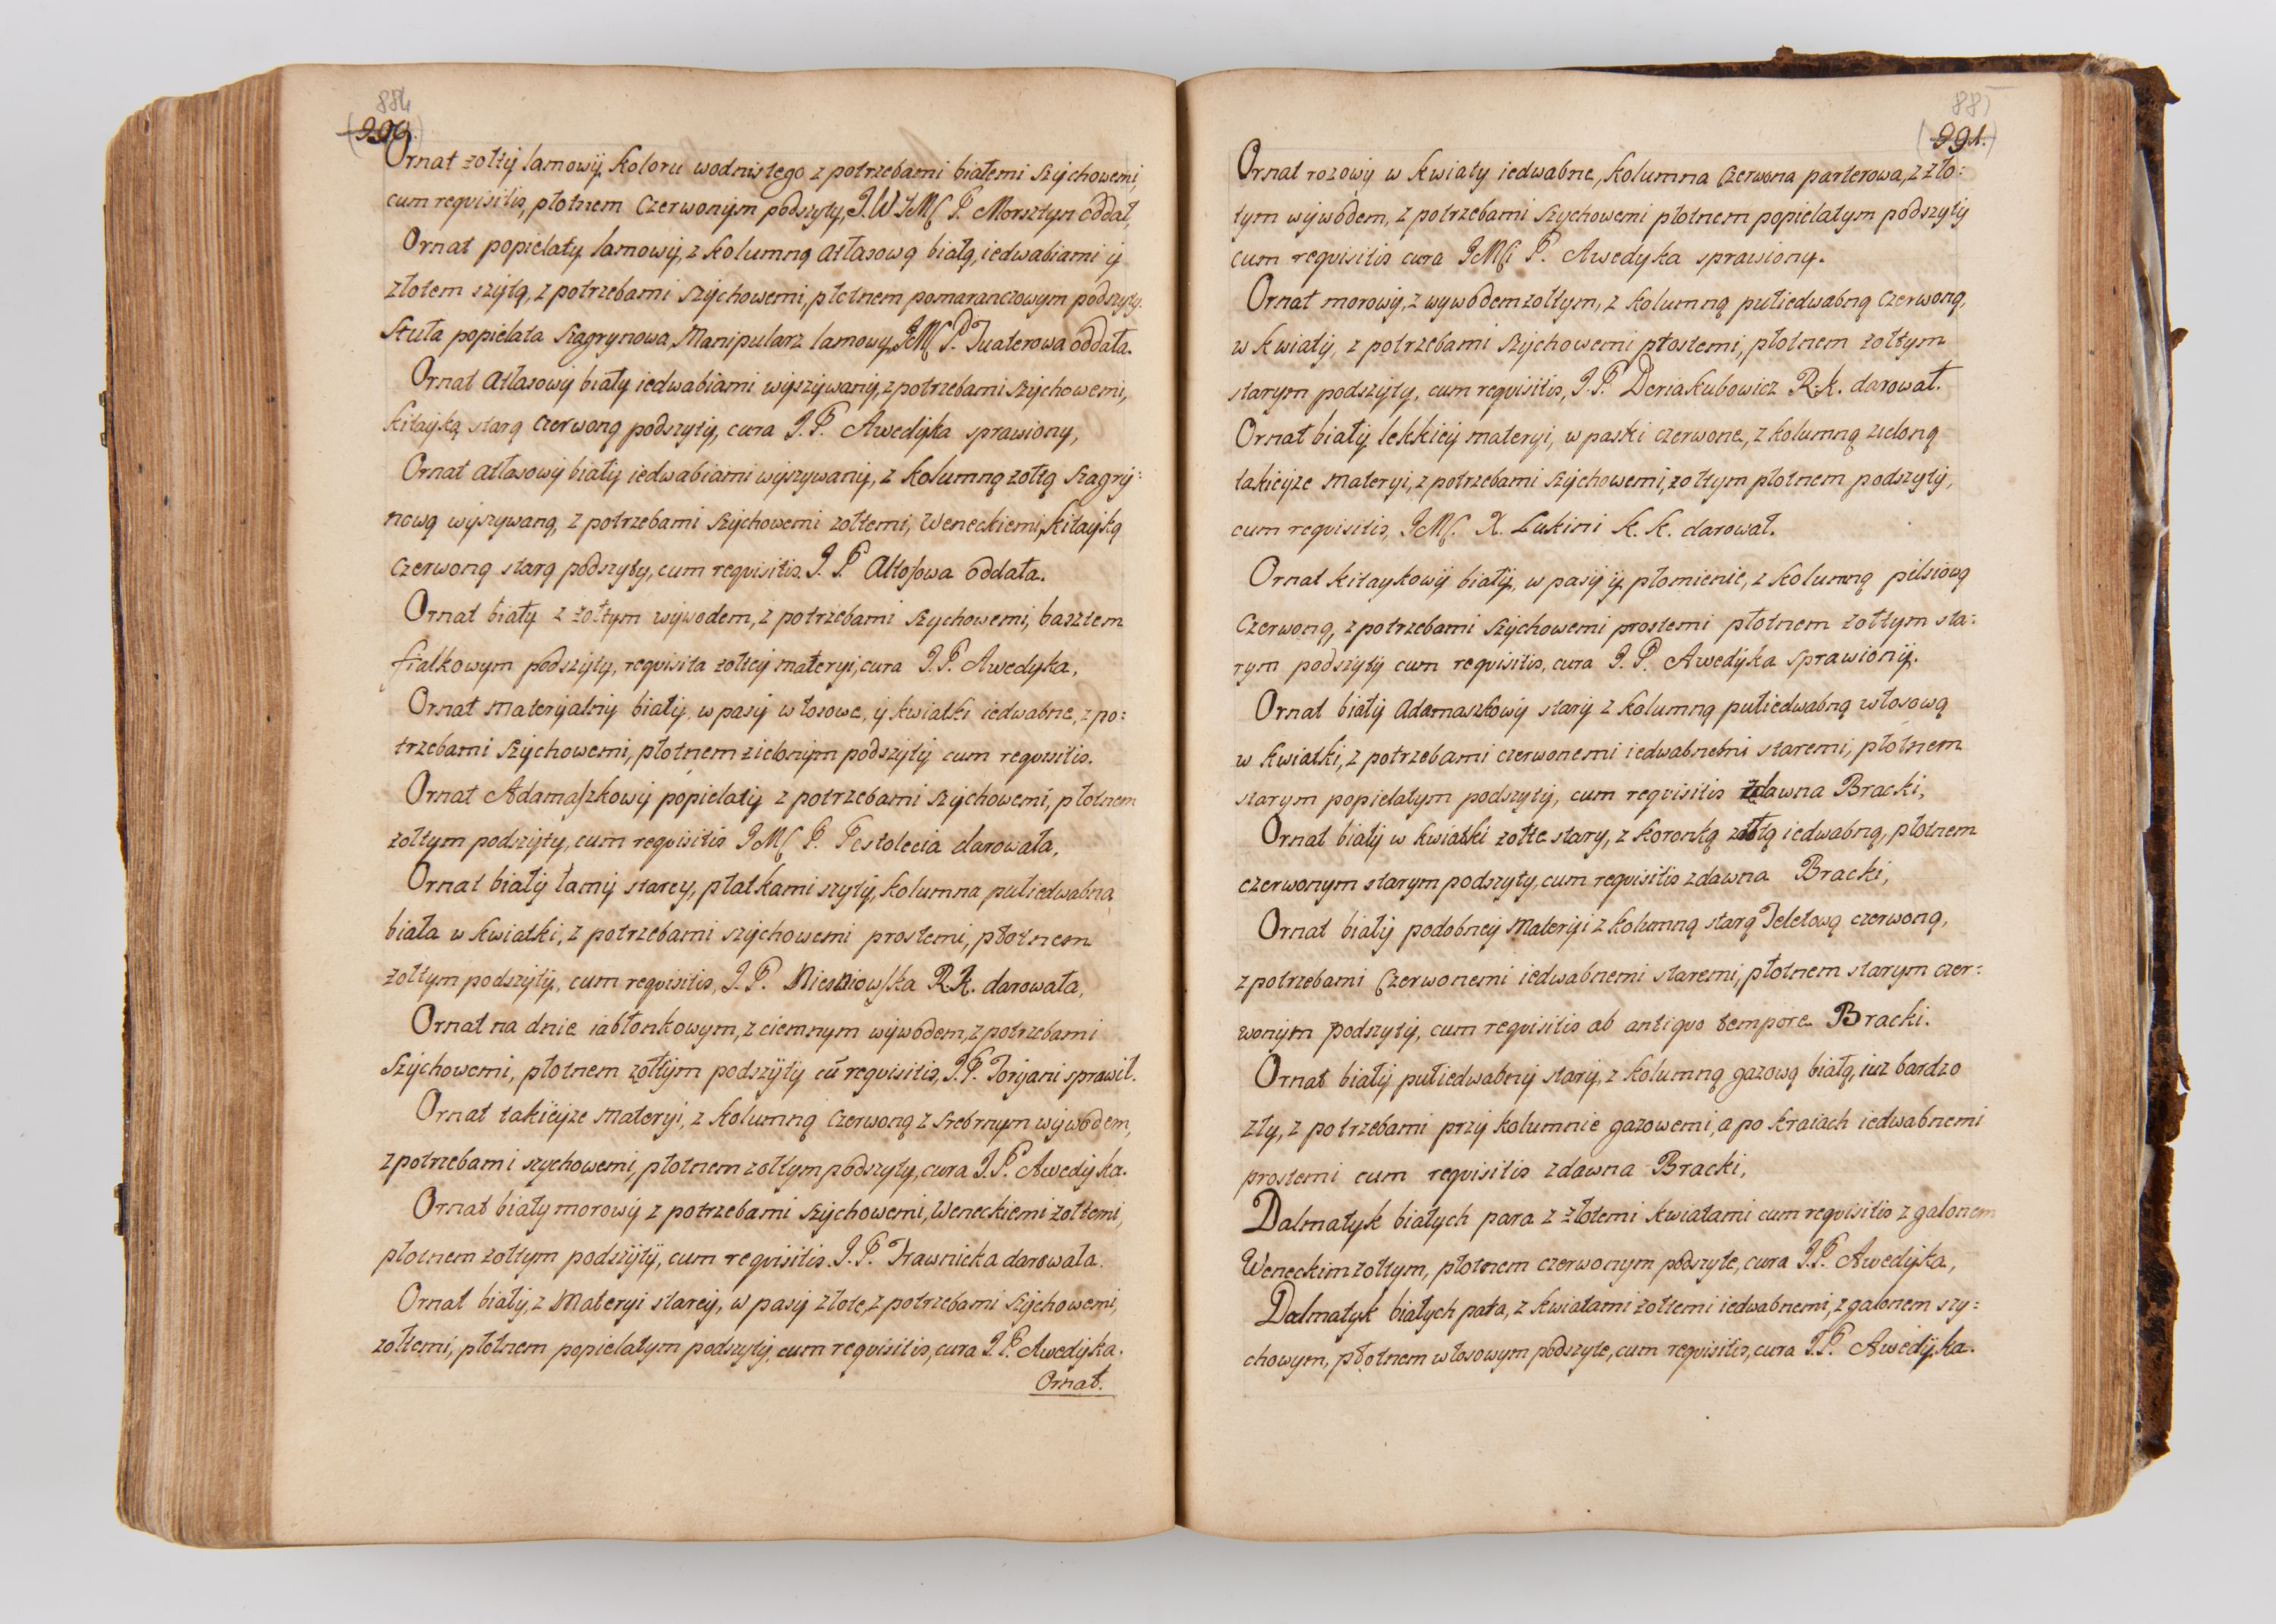 884
990.
Ornat zołty lamowy, koloru wodnistego z potrzebami białemi szychowemi,
cum requisitis, płotnem czerwonym podszyty, J.W JMſ P. Morsztyn oddał,
Ornat popielaty lamowy, z kolumną atłasową białą, iedwabiami y
złotem szytą, z potrzebami szychowemi, płotnem pomaranczowym podszyty.
Stuła popielata szagrynowa, Manipularz lamowy, JMſ P. Tuaterowa oddała.
Ornat atłasowy biały iedwabiami wyszywany, z potrzebami szychowemi,
kitayką starą czerwoną podszyty, cura J.P. Awedyka sprawiony,
Ornat atłasowy biały iedwabiami wyszywany, z kolumną zołtą szagry:
nową wyszywaną, z potrzebami szychowemi zołtemi, Weneckiemi, kitayką
czerwoną starą podszyty, cum requisitis. J. P. Altoſowa oddała.
Ornat biały z żołtym wywodem, z potrzebami szychowemi, basztem
fiałkowym podszyty, requisita zołtey materyi, cura J.P. Awedyka,
Ornat materyalny biały, w pasy włosowe, y kwiatki iedwabne, z po:
trzebami szychowemi, płotnem zielonym podszyty cum requisitis.
Ornat Adamaſzkowy popielaty z potrzebami szychowemi, płotnem
żołtym podszyty, cum requisitis JMſ P. Testolecia darowała,
Ornat biały łamy starey, płatkami szyty, kolumna pułiedwabna
biała w kwiatki, z potrzebami szychowemi prostemi, płotnem
żołtym podszyty, cum requisitis, J.P. Niesniowſka R.K. darowała,
Ornat na dnie iabłonkowym, z ciemnym wywodem, z potrzebami
Szychowemi, płotnem zołtym podszyty cū requisitis, J.P. Toryani sprawił.
Ornat takieyze materyi, z kolumną czerwoną z srebrnym wywodem,
z potrzebami szychowemi, płotnem zołtym podszyty, cura J.P. Awedyka.
Ornat biały morowy z potrzebami szychowemi, Weneckiemi żołtemi,
płotnem zołtym podszyty, cum requisitis. J.P. Trawnicka darowała.
Ornat biały, z Materyi starey, w pasy złote, z potrzebami szychowemi,
zołtemi, płotnem popielatym podszyty, cum requisitis, cura J.P. Awedyka.
Ornat.
885
991.
Ornat rozowy w kwiaty iedwabne, kolumna czerwona parterowa, z zło:
tym wywodem, z potrzebami szychowemi płotnem popielatym podszyty
cum requisitis cura JMſi P. Awedyka sprawiony.
Ornat morowy, z wywodem zołtym, z kolumną pułiedwabną czerwoną,
w kwiaty, z potrzebami szychowemi prostemi, płotnem żołtym
starym podszyty, cum requisitis, J.P. Deriakubowicz R.K. darował.
Ornat biały lekkiey materyi, w paski czerwone, z kolumną zieloną
takieyze materyi, z potrzebami szychowemi, zołtym płotnem podszyty,
cum requisitis, JMſ. X. Lukini K. K. darował.
Ornat kitaykowy biały, w pasy y płomienie, z kolumną pilsiową
czerwoną, z potrzebami szychowemi prostemi płotnem żołtym sta:
rym podszyty cum requisitis, cura J. P. Awedyka sprawiony.
Ornat biały adamaszkowy stary z kolumną pułiedwabną włosową
w kwiatki, z potrzebami czerwonemi iedwabnemi staremi, płotnem
starym popielatym podszyty, cum requisitis zdawna Bracki,
Ornat biały w kwiatki żołte stary, z koronką zołtą iedwabną, płotnem
czerwonym starym podszyty, cum requisitis zdawna Bracki,
Ornat biały podobney materyi z kolumną starą Teletową czerwoną,
z potrzebami czerwonemi iedwabnemi staremi, płotnem starym czer:
wonym podszyty, cum requisitis ab antiquo tempore Bracki.
Ornat biały pułiedwabny stary, z kolumną gazową białą, iuz bardzo
zły, z potrzebami przy kolumnie gazowemi, a po kraiach iedwabnemi
prostemi cum requisitis zdawna Bracki,
Dalmatyk białych para z złotemi kwiatami cum requisitis z galonem
Weneckim zołtym, płotnem czerwonym podszyte, cura J.P. Awedyka,
Dalmatyk białych para, z kwiatami żołtemi iedwabnemi, z galonem szy:
chowym, płotnem włosowym podszyte, cum requisitis, cura J.P. Awedyka.